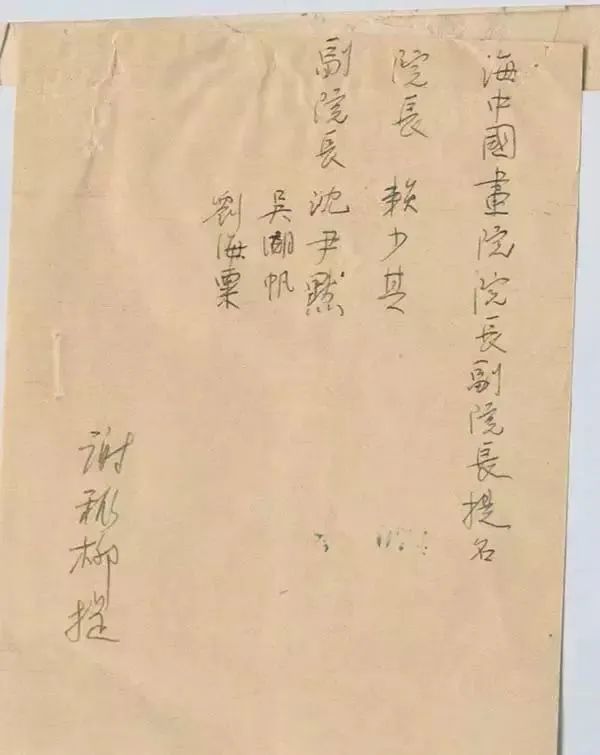 海中國畫院院長副院長提名
院長 賴少其
副院長 沈尹默
吳湖帆
劉海粟
謝稚柳提